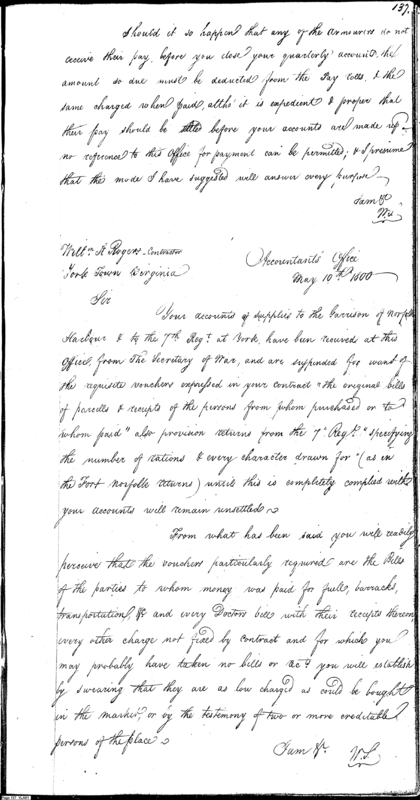 137.
Should it so happen that any of the Armourers do not
receive their pay, before you close your quarterly account, the
amount so due must be deducted from the Pay rolls, & the
same charged when paid, altho' it is expedient & proper that
their pay should be before your accounts are made up—
no reference to this Office for payment can be permitted; & I presume
that the mode I have suggested will answer every purpose—
I am &c
W.S.
Willm A Rogers—Contractor
York Town Virginia
Accountants Office
May 10th 1800
Sir
Your accounts of supplies to the Garrison of Norfolk
Harbour & to the 7th Regt. at York, have been received at this
Office, from The Secretary of War, and are suspended for want of
the requisite vouchers expressed in your contract "the original bills
of parcells & receipts of the persons from whom purchased or to
whom paid" also provision returns from the 7th Regt. "specifying
the number of rations & every character drawn for" (as in
the Fort Norfolk returns) until this is completely complied with
your accounts will remain unsettled
From what has been said you will readily
perceive that the vouchers particularly required are the Bills
of the parties to whom money was paid for fuell, barracks,
transportation &c and every Doctors bill with their receipts thereon
every other charge not fixed by contract and for which you
may probably have taken no bills or &c you will establish
by swearing that they are as low charged as could be bought
in the market, or by the testemony of two or more creditable
persons of the place
I am &c.
W.S.